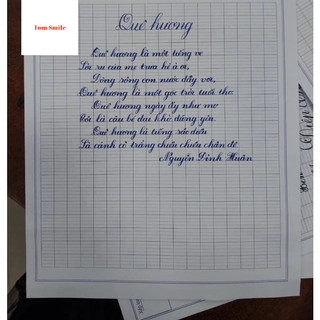 Tom Smile
Quê hương
Quê hương là một tiếng ve
Lời ru của mẹ trưa hè à ơi,
Dòng sông con nước đầy vơi,
Quê hương là một góc trời tuổi thơ.
Quê hương ngày ấy như mơ
Tôi là cậu bé dại khờ đáng yêu
Quê hương là tiếng sáo diều
Là cánh cò trắng chiều chiều chân đê.
Nguyễn Đình Huân